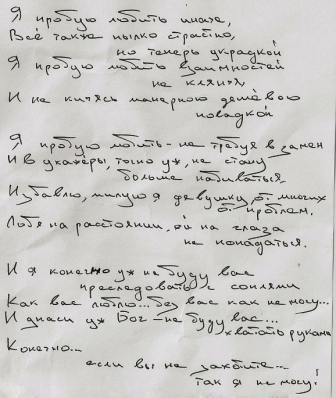 Я пробую любить иначе,
Всё также пылко страстно,
но теперь украдкой
Я пробую любить взаимностей
не кляня,
И не кичясь манерною дешёвою
повадкой

Я пробую любить - не требуя взамен
И в ухажеры, точно уж, не стану
больше набиваться
Избавлю, милую я девушку от многих
от проблем.
Любя на расстоянии, ей на глаза
не попадаться.

И я конечно уж не буду вас
преследовать с соплями
Как вас люблю... без вас как не могу...
И уж Бог - не буду вас...
хватать руками
Конечно...
если вы не захотите...
так я не могу!